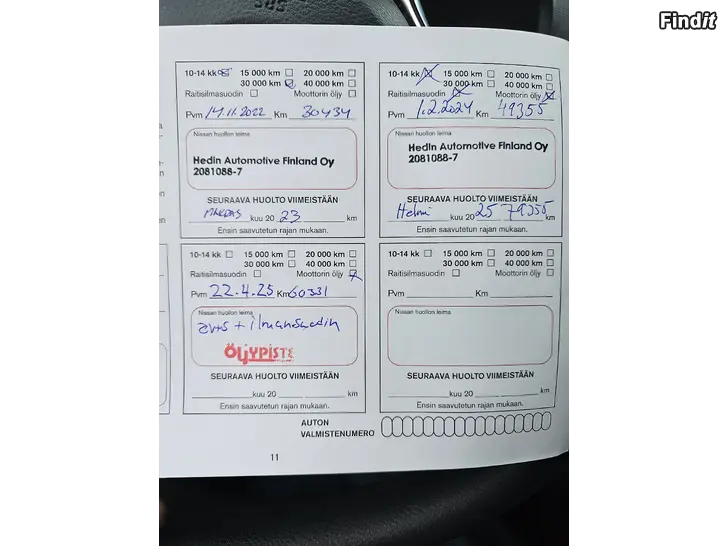 Findit
10-14 kk 15 000 km 20 000 km
30 000 km 40 000 km
Raitisilmasuodin Moottorin öljy
Pvm 14.11.2022 Km 30434
Nissan huollon leima
Hedin Automotive Finland Oy
2081088-7
SEURAAVA HUOLTO VIIMEISTÄÄN
kuu 20 23 km
Ensin saavutetun rajan mukaan.
10-14 kk 15 000 km 20 000 km
30 000 km 40 000 km
Raitisilmasuodin Moottorin öljy
Pvm 1.2.2024 Km 49355
Nissan huollon leima
Hedin Automotive Finland Oy
2081088-7
SEURAAVA HUOLTO VIIMEISTÄÄN
Helmi kuu 20 25 79355 km
Ensin saavutetun rajan mukaan.
10-14 kk 15 000 km 20 000 km
30 000 km 40 000 km
Raitisilmasuodin Moottorin öljy
Pvm 22.4.25 Km 60331
Nissan huollon leima
+ ilmansuodin
ÖLJYPISTE
SEURAAVA HUOLTO VIIMEISTÄÄN
kuu 20 km
Ensin saavutetun rajan mukaan.
10-14 kk 15 000 km 20 000 km
30 000 km 40 000 km
Raitisilmasuodin Moottorin öljy
Pvm Km
Nissan huollon leima
SEURAAVA HUOLTO VIIMEISTÄÄN
kuu 20 km
Ensin saavutetun rajan mukaan.
AUTON
VALMISTENUMERO
11